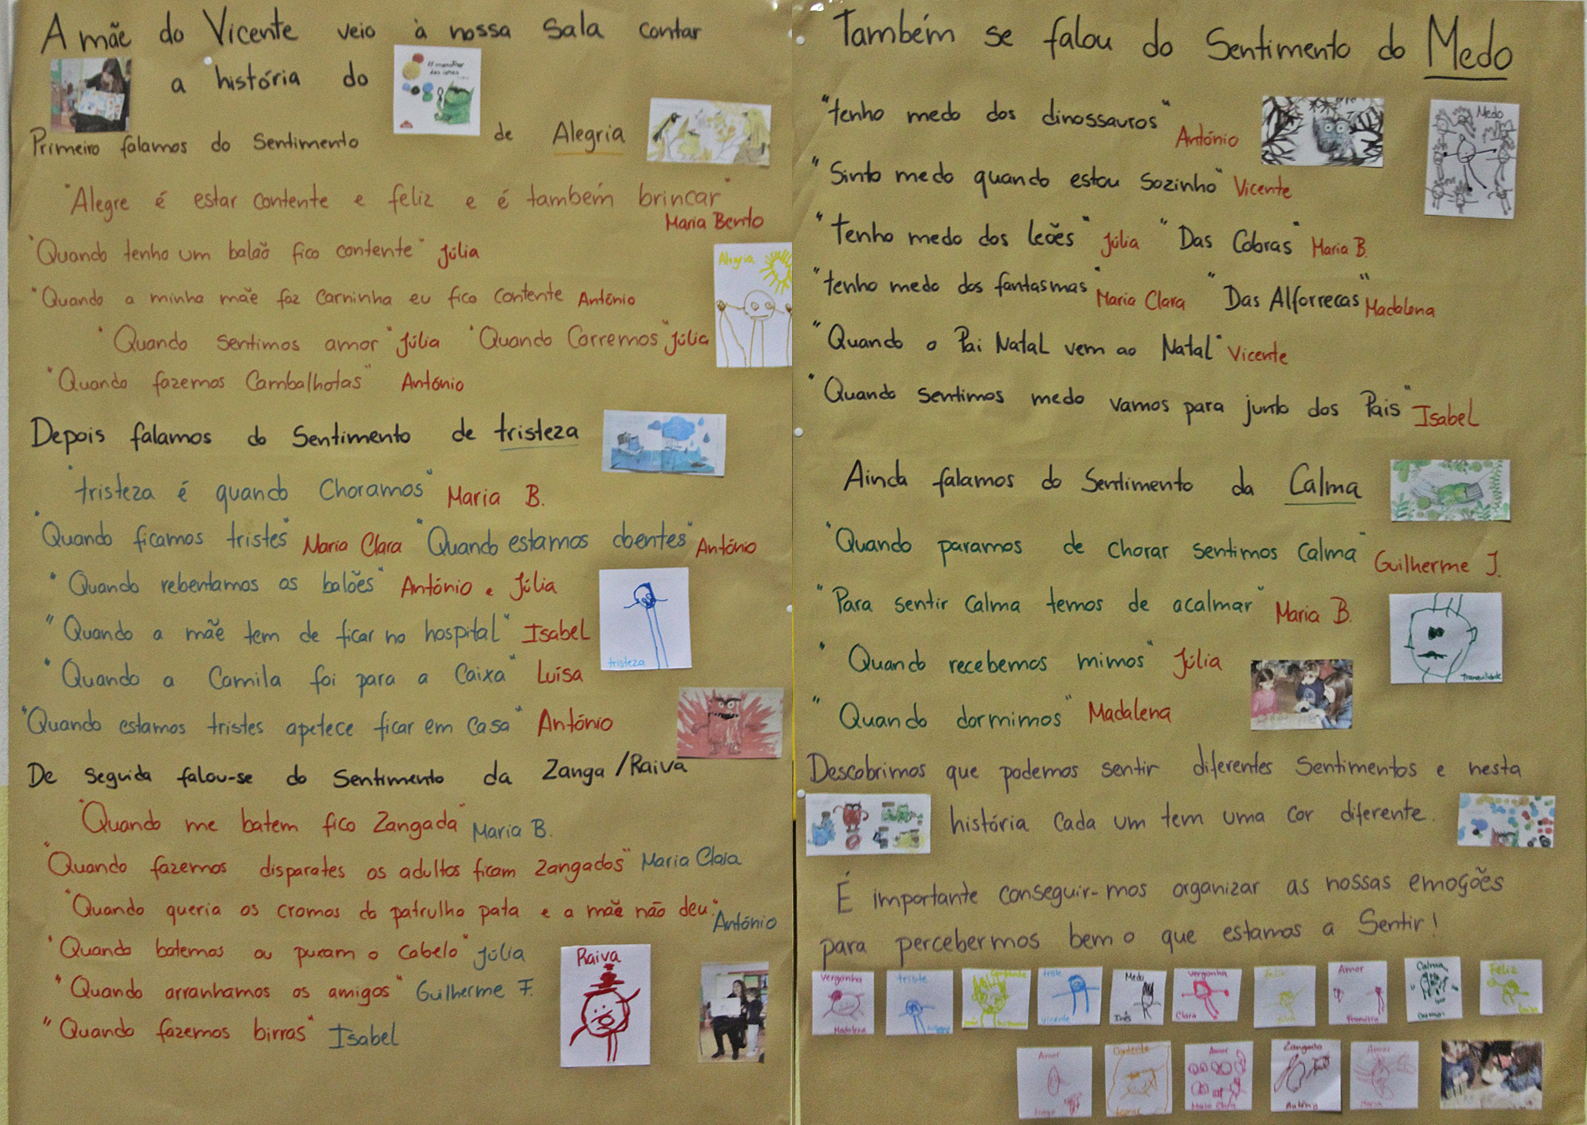 A mãe do Vicente veio à nossa sala contar
a história do
O monstro das cores
Primeiro falamos do Sentimento de Alegria
"Alegre é estar contente e feliz e é também brincar"
Maria Bento
"Quando tenho um balão fico contente" Júlia
"Quando a minha mãe faz carninha eu fico contente António
Alegria
"Quando sentimos amor" Júlia "Quando Corremos" Júlia
"Quando fazemos Cambalhotas" António
Depois falamos do Sentimento de tristeza
"tristeza é quando Choramos" Maria B.
"Quando ficamos tristes" Maria Clara "Quando estamos doentes" António
"Quando rebentamos os balões" António e Júlia
"Quando a mãe tem de ficar no hospital" Isabel
tristeza
"Quando a Camila foi para a Caixa" Luísa
"Quando estamos tristes apetece ficar em casa" António
De seguida falou-se do Sentimento da Zanga/Raiva
"Quando me batem fico Zangada" Maria B.
"Quando fazemos disparates os adultos ficam Zangados" Maria Clara
"Quando queria os cromos da patrulha pata e a mãe não deu" António
"Quando batemos ou puxam o Cabelo" Júlia
Raiva
"Quando arranhamos os amigos" Guilherme F.
"Quando fazemos birras" Isabel
Também se falou do Sentimento do Medo
"tenho medo dos dinossauros" António
Medo
"Sinto medo quando estou Sozinho" Vicente
"tenho medo dos leões" Júlia "Das Cobras" Maria B.
"tenho medo dos fantasmas" Maria Clara "Das Alforrecas" Madalena
"Quando o Pai Natal vem ao Natal" Vicente
"Quando sentimos medo vamos para junto dos Pais" Isabel
Ainda falamos do Sentimento da Calma
"Quando paramos de chorar sentimos Calma" Guilherme J.
"Para sentir Calma temos de acalmar" Maria B.
"Quando recebemos mimos" Júlia
tranquilidade
"Quando dormimos" Madalena
Descobrimos que podemos sentir diferentes Sentimentos e nesta
história Cada um tem uma cor diferente.
É importante conseguir-mos organizar as nossas emoções
para percebermos bem o que estamos a Sentir!
Vergonha Madalena
triste
triste Vicente
Medo Inês
Vergonha Clara
Amor Francisca
Calma
Feliz
Amor
Contente
Amor Maria Clara
Zangado António
Amor Maria